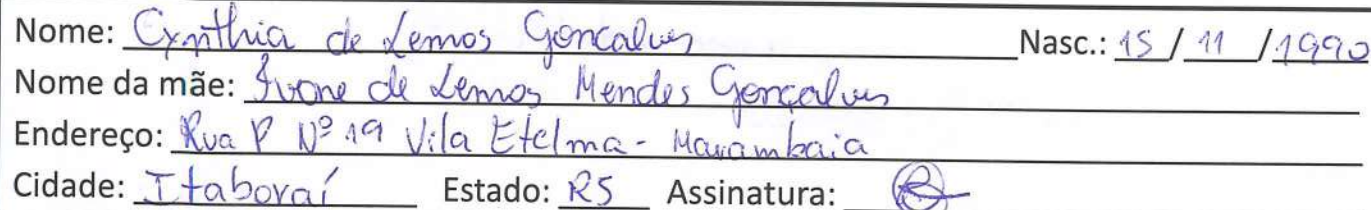 Nome: Cynthia de Lemos Goncalves Nasc.: 15 / 11 / 1990
Nome da mãe: Ivone de Lemos Mendes Gonçalves
Endereço: Rua P Nº 19 Vila Etelma - Marambaia
Cidade: Itaboraí Estado: RS Assinatura: